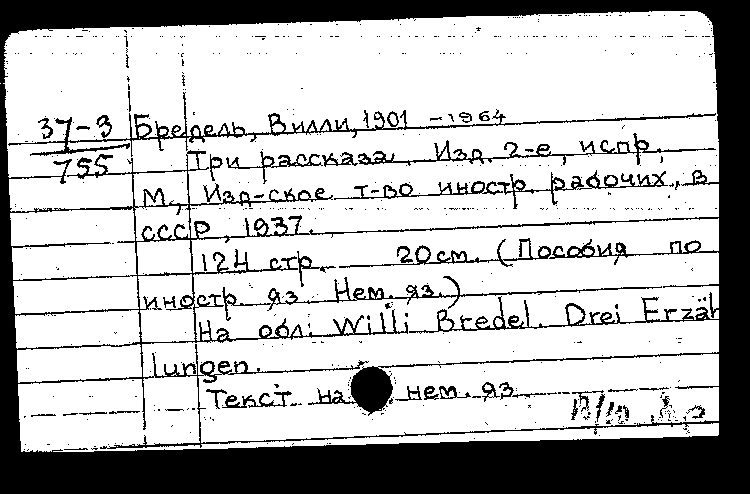 37-3 Бредель, Вилли, 1901 - 1964
755 Три рассказа. Изд. 2-е, испр.
М., Изд-ское т-во иностр. рабочих, в
СССР, 1937.
124 стр. 20 см. (Пособия по
иностр. яз. Нем. яз.)
На обл: Willi Bredel. Drei Erzäh
lungen.
Текст на нем. яз